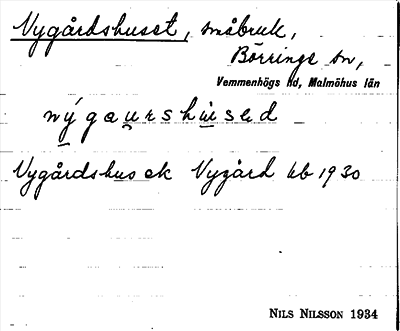 Nygårdshuset, småbruk,
Börringe sn,
Vemmenhögs hd, Malmöhus län
Nygårdshus ek Nygård kb 1930
NILS NILSSON 1934